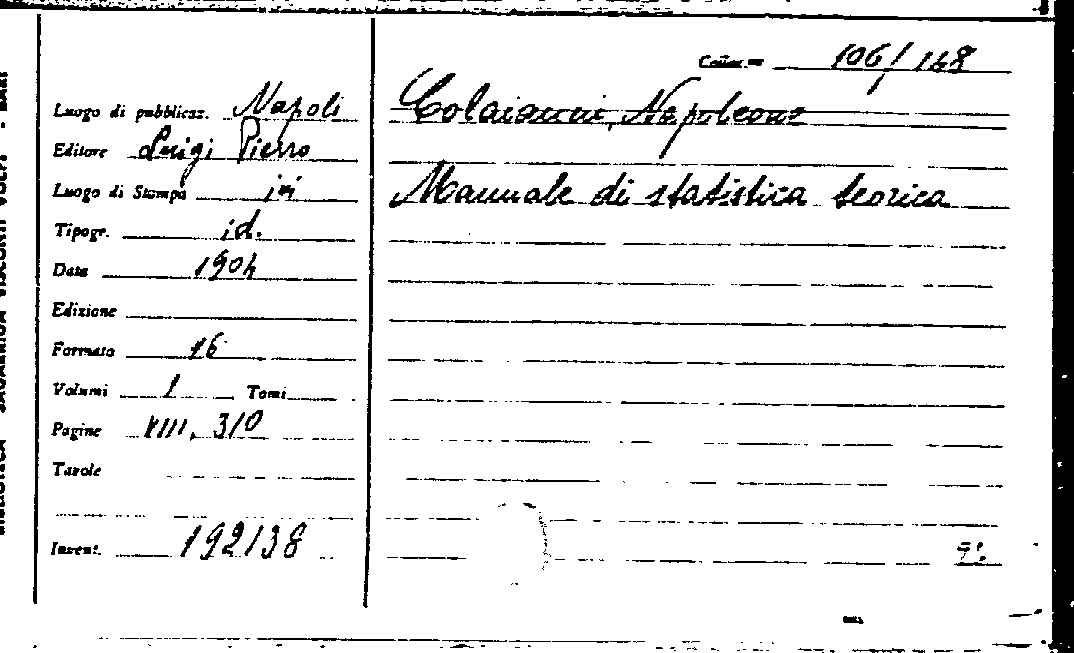 106/148
Colaianni, Napoleone
Manuale di statistica teorica
Luogo di pubblicaz. Napoli
Editore Luigi Pierro
Luogo di Stampa ivi
Tipogr. id.
Data 1904
Edizione
Formato 16
Volumi 1 Tomi
Pagine VIII, 310
Tavole
Invent. 192138
SAGARRIGA VISCONTI VOLPI - BARI